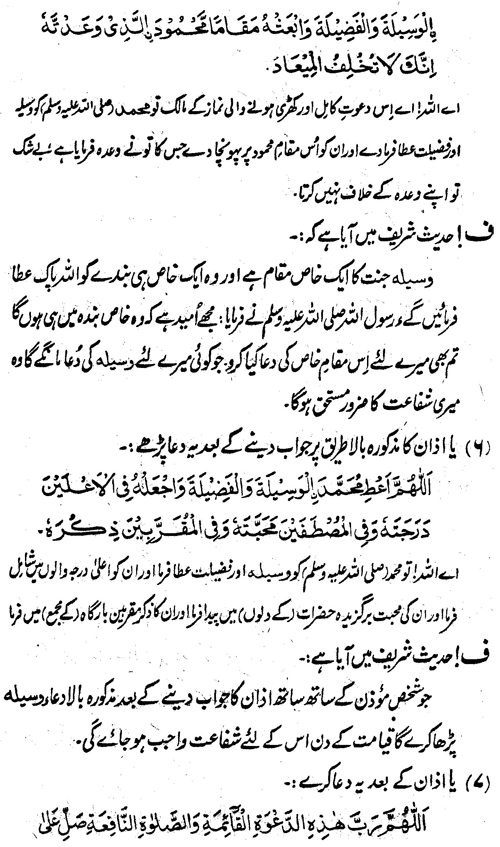 بِالْوَسِيْلَةَ وَالْفَضِيْلَةَ وَابْعَثْهُ مَقَامًا مَّحْمُوْدَ نِ الَّذِىْ وَعَدْتَّهٗ
اِنَّكَ لَا تُخْلِفُ الْمِيْعَادَ۔
اے اللہ! اے اِس دعوتِ کامل اور کھڑی ہونے والی نماز کے مالک تو محمد (صلی اللہ علیہ وسلم) کو وسیلہ
اور فضیلت عطا فرما دے اور ان کو اُس مقامِ محمود پر پہونچا دے جس کا تو نے وعدہ فرمایا ہے بے شک
تو اپنے وعدہ کے خلاف نہیں کرتا۔
ف! حدیث شریف میں آیا ہے کہ:۔
وسیلہ جنت کا ایک خاص مقام ہے اور وہ ایک خاص ہی بندے کو اللہ پاک عطا
فرمائیں گے، رسول اللہ صلی اللہ علیہ وسلم نے فرمایا: مجھے اُمید ہے کہ وہ خاص بندہ میں ہی ہوں گا
تم بھی میرے لئے اِس مقامِ خاص کی دعا کیا کرو۔ جو کوئی میرے لئے وسیلہ کی دُعا مانگے گا وہ
میری شفاعت کا ضرور مستحق ہوگا۔
(۶) یا اذان کا مذکورہ بالا طریق پر جواب دینے کے بعد یہ دعا پڑھے:۔
اَللّٰهُمَّ اَعْطِ مُحَمَّدَ نِ الْوَسِيْلَةَ وَالْفَضِيْلَةَ وَاجْعَلْهُ فِى الْاَعْلَيْنَ
دَرَجَتَهٗ وَفِى الْمُصْطَفَيْنَ مَحَبَّتَهٗ وَفِى الْمُقَرَّبِيْنَ ذِكْرَهٗ۔
اے اللہ! تو محمد (صلی اللہ علیہ وسلم) کو وسیلہ اور فضیلت عطا فرما اور ان کو اعلیٰ درجہ والوں میں شامل
فرما اور ان کی محبت برگزیدہ حضرات (کے دلوں) میں پیدا فرما اور ان کا ذکر مقربین بارگاہ (کے مجمع) میں فرما
ف! حدیث شریف میں آیا ہے:۔
جو شخص مؤذن کے ساتھ ساتھ اذان کا جواب دینے کے بعد مذکورہ بالا دعاءِ وسیلہ
پڑھا کرے گا قیامت کے دن اس کے لئے شفاعت واجب ہو جائے گی۔
(۷) یا اذان کے بعد یہ دعا کرے:۔
اَللّٰهُمَّ رَبَّ هٰذِهِ الدَّعْوَةِ الْقَائِمَةِ وَالصَّلٰوةِ النَّافِعَةِ صَلِّ عَلٰى